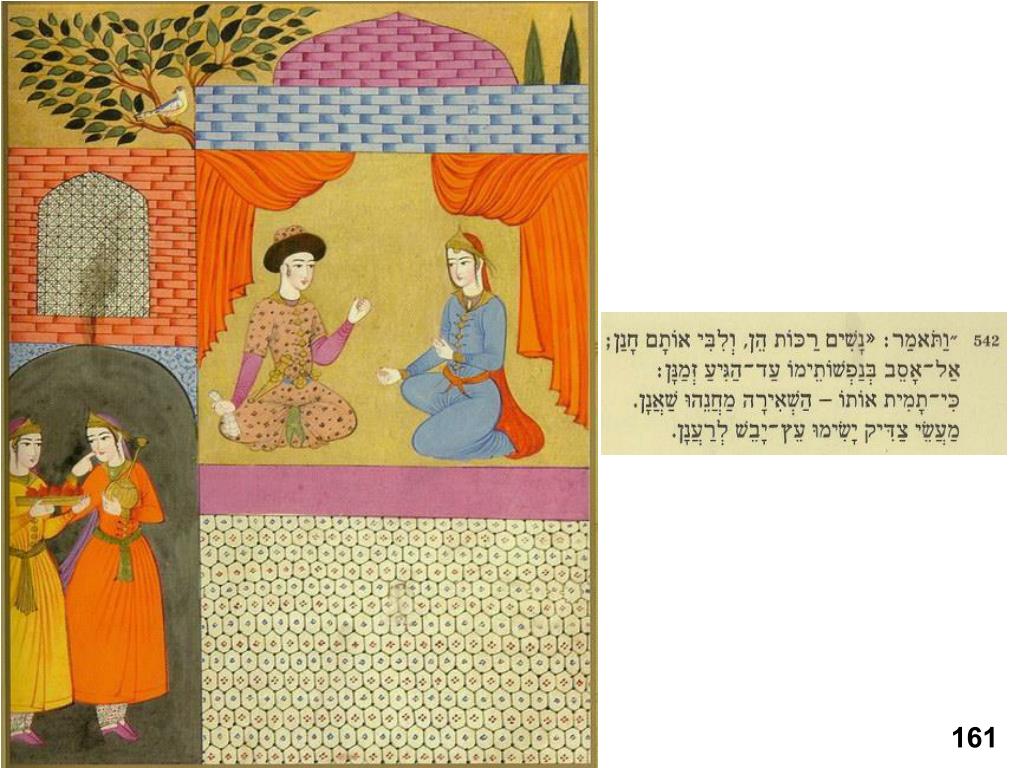 542 ״וַתֹּאמַר: «נָשִׁים רַכּוֹת הֵן, וְלִבִּי אוֹתָם חָנַן;
אַל־אָסֵב בְּנַפְשׁוֹתֵימוֹ עַד־הַגִּיעַ זְמַנָּן:
כִּי־תָמִית אוֹתוֹ – הַשְׁאִירָה מַחֲנֵהוּ שַׁאֲנָן.
מַעֲשֵׂי צַדִּיק יָשִׂימוּ עֵץ־יָבֵשׁ לְרַעֲנָן.
161